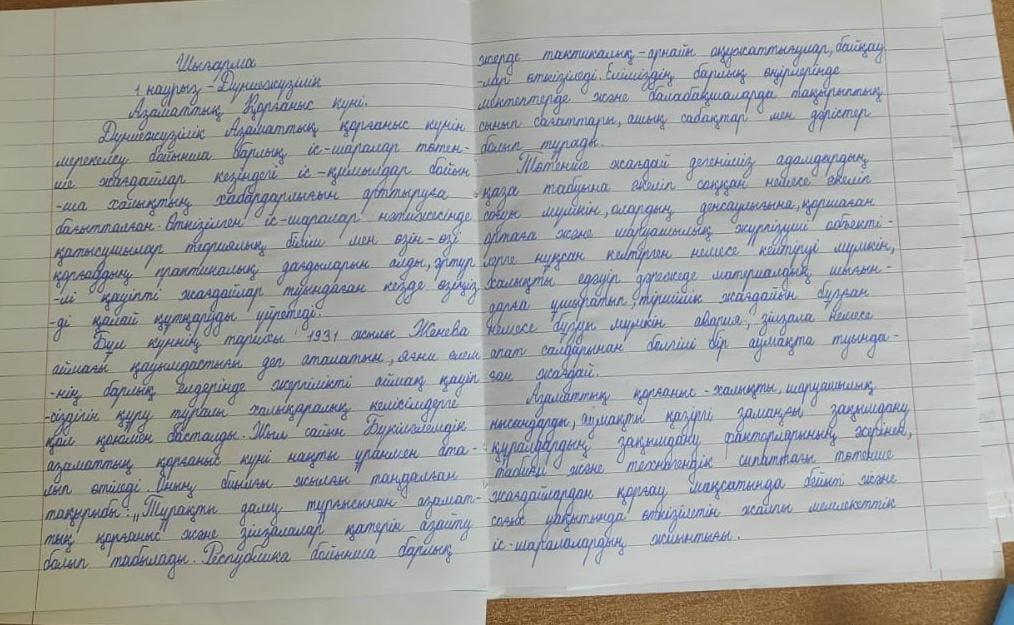 Шығарма
1 наурыз - Дүниежүзілік
Азаматтық Қорғаныс күні.
Дүниежүзілік Азаматтық қорғаныс күнін
мерекелеу бойынша барлық іс-шаралар төтен-
ше жағдайлар кезіндегі іс-қимылдар бойын
-ша халықтың хабардарлығын арттыруға
бағытталған. Өткізілген іс-шаралар нәтижесінде
қатысушылар теориялық білім мен өзін-өзі
қорғаудың практикалық дағдыларын алды, әртүр
-лі қауіпті жағдайлар туындаған кезде өзіңіз
-ді қалай құтқаруды үйретеді.
Бұл күннің тарихы 1931 жылы Женева
аймағы қауымдастығы деп аталатын, яғни әлем
-нің барлық елдерінде жергілікті аймақ қауіп
-сіздігін құру туралы халықаралық келісімдерге
қол қоюмен басталды. Жыл сайын Бүкіләлемдік
азаматтық қорғаныс күні нақты ұранмен ата-
лып өтіледі. Оның биылғы жылғы таңдалған
тақырыбы: „Тұрақты даму тұрғысынан азамат-
тық қорғаныс және зілзалалар қатерін азайту
болып табылады. Республика бойынша барлық
жерде тактикалық-арнайы оқужаттығулар, байқау
-лар өткізіледі. Еліміздің барлық өңірлерінде
мектептерде және балабақшаларда тақырыптық
сынып сағаттары, ашық сабақтар мен дәрістер
болып тұрады.
Төтенше жағдай дегеніміз адамдардың
қаза табуына әкеліп соққан немесе әкеліп
соғуы мүмкін, олардың денсаулығына, қоршаған
ортаға және шаруашылық жүргізуші объекті-
лерге нұқсан келтірген немесе келтіруі мүмкін,
халықты едәуір дәрежеде материалдық шығын-
дарға ұшыратып, тіршілік жағдайын бұзған
немесе бұзуы мүмкін авария, зілзала немесе
апат салдарынан белгілі бір аумақта туында-
ған жағдай.
Азаматтық қорғаныс - халықты, шаруашылық
нысандарды, аумақты қазіргі заманғы зақымдану
құралдардың зақымдану факторларының әсерінен,
табиғи және техногендік сипаттағы төтенше
жағдайлардан қорғау мақсатында бейбіт және
соғыс уақытында өткізілетін жалпы мемлекеттік
іс-шаралардың жиынтығы.